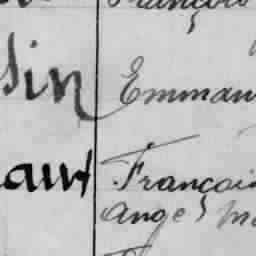 François
sin Emman
aut François
Ange, Ma